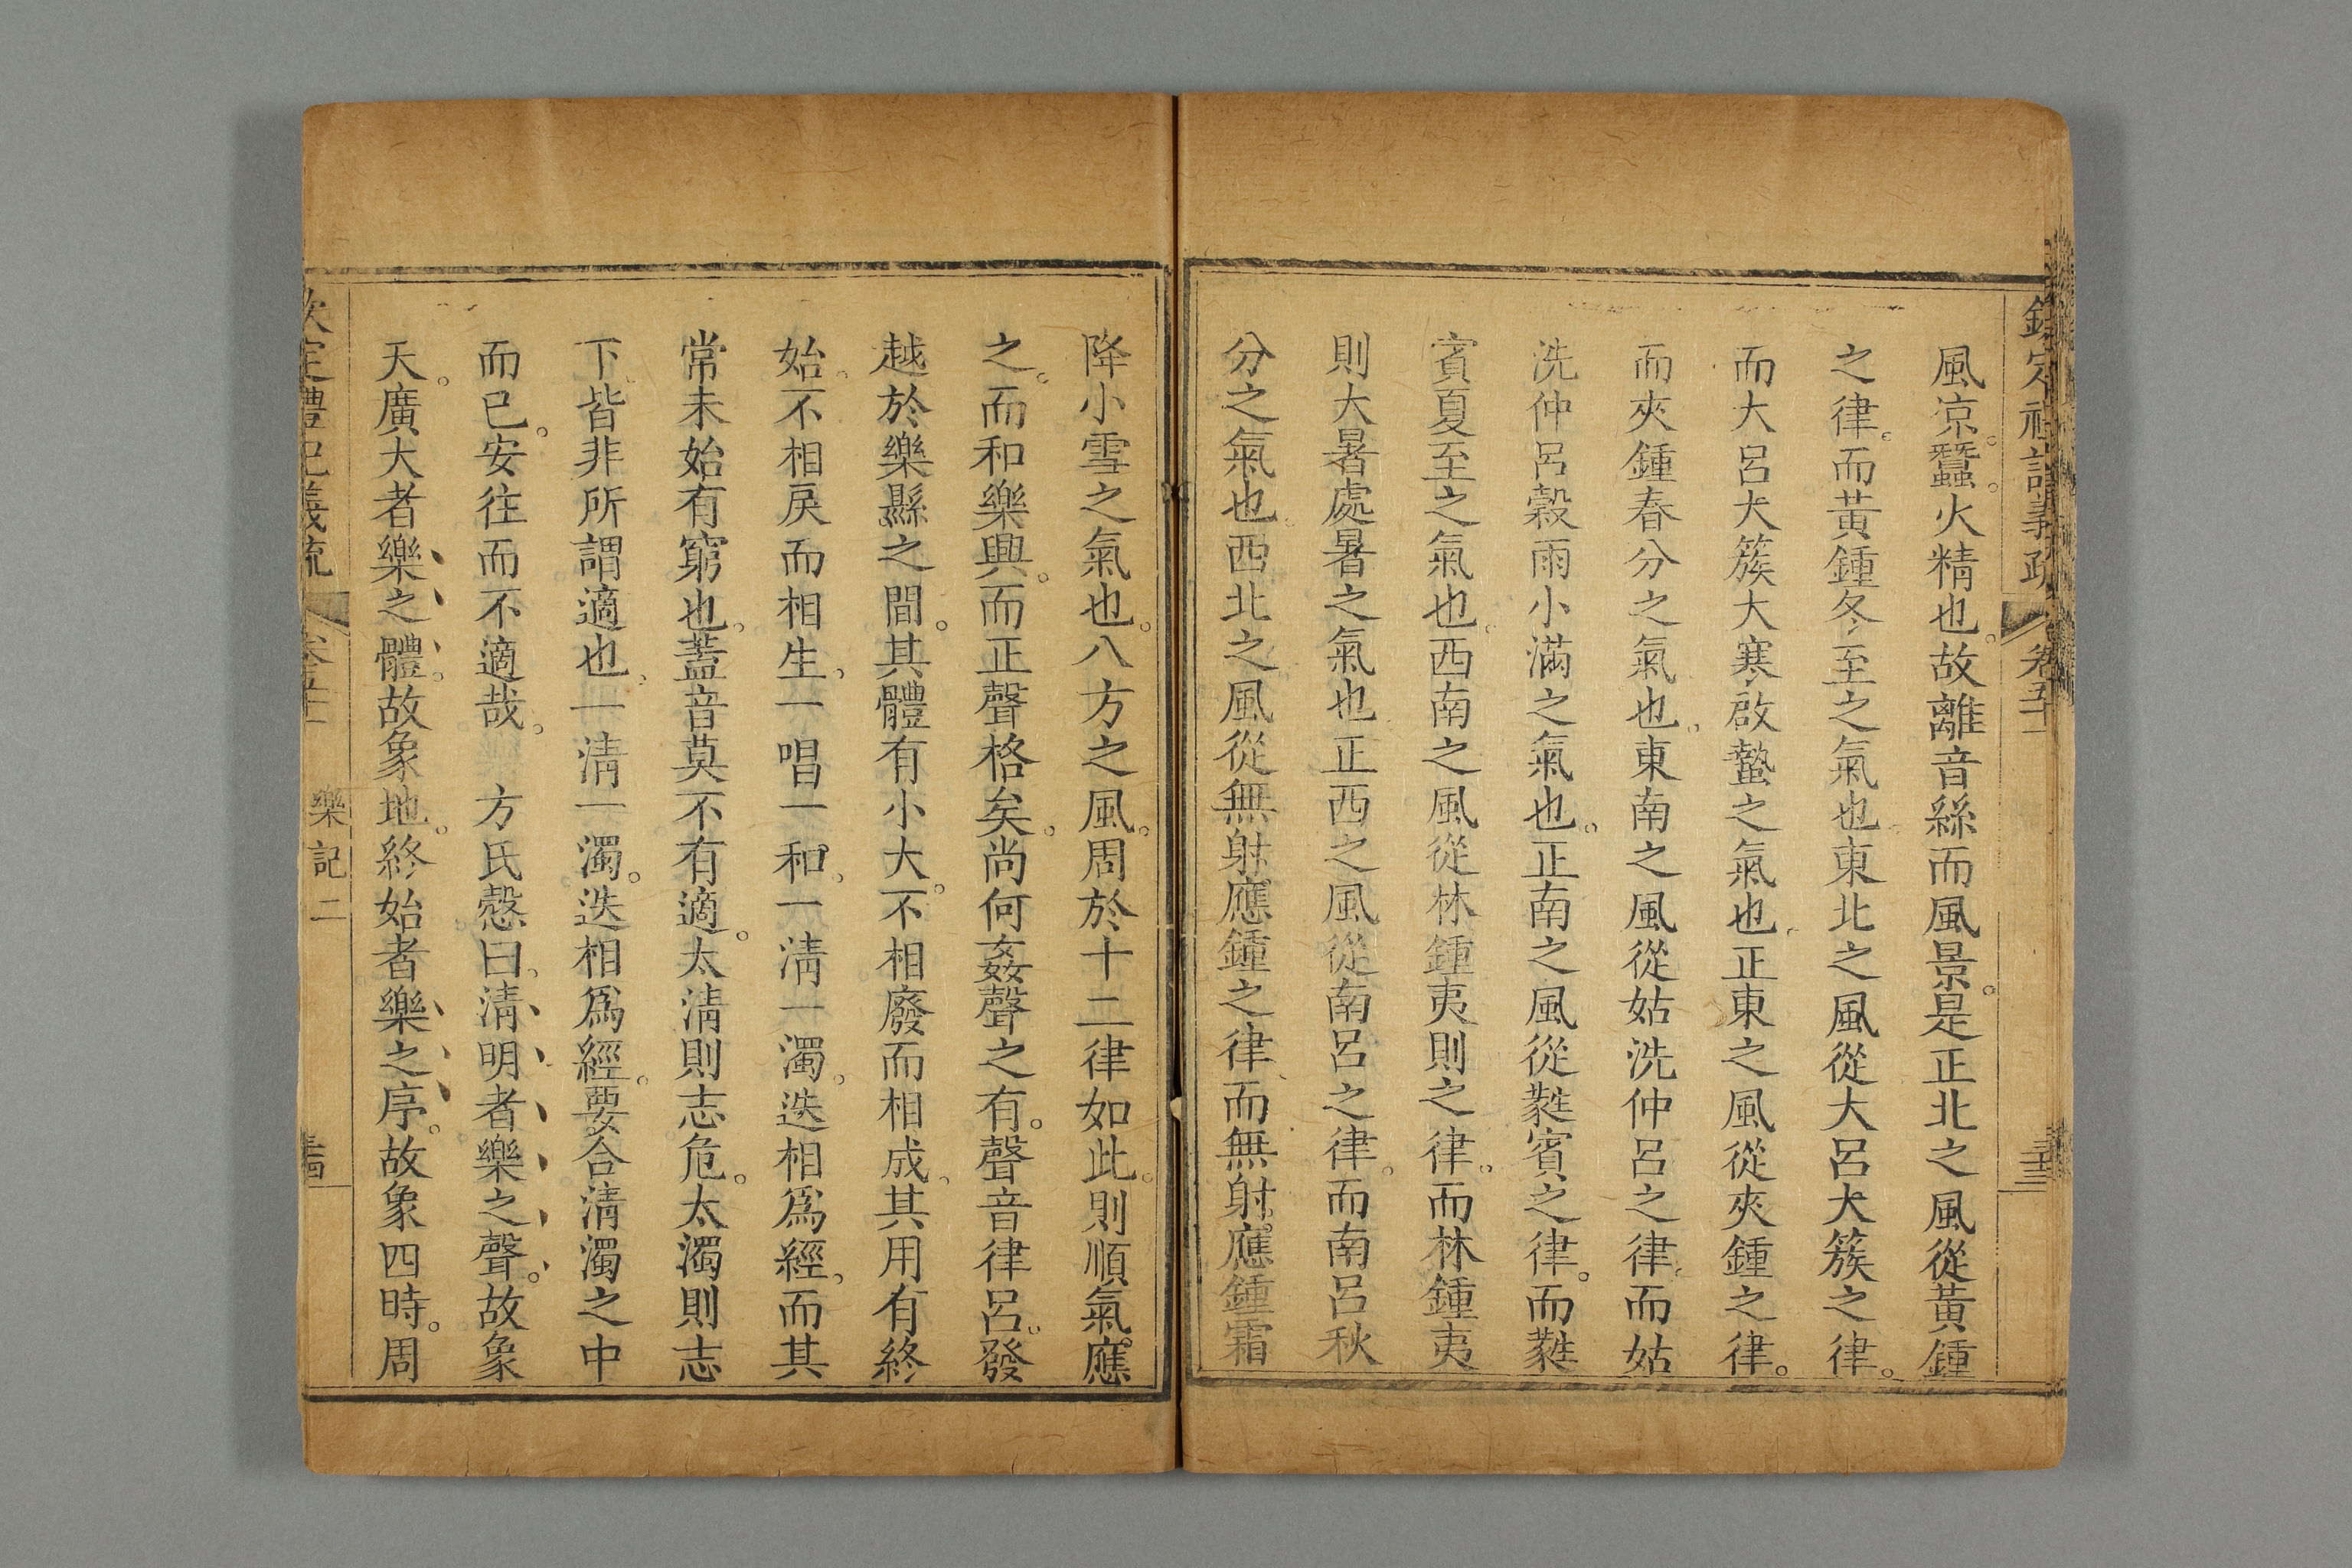 欽定禮記義疏 卷五十一
風凉。蠶。火精也。故離音絲而風景。是正北之風從黃鍾
之律。而黃鍾冬至之氣也。東北之風從大呂大簇之律。
而大呂大簇大寒啟蟄之氣也。正東之風從夾鍾之律。
而夾鍾春分之氣也。東南之風從姑洗仲呂之律。而姑
洗仲呂穀雨小滿之氣也。正南之風從蕤賓之律。而蕤
賓夏至之氣也。西南之風從林鍾夷則之律。而林鍾夷
則大暑處暑之氣也。正西之風從南呂之律。而南呂秋
分之氣也。西北之風從無射應鍾之律。而無射。應鍾霜
降小雪之氣也。八方之風。周於十二律如此。則順氣。應
之。而和樂興。而正聲格矣。尚何姦聲之有。聲音律呂。發
越於樂縣之間。其體有小大。不相廢而相成。其用有終
始。不相戾而相生。一唱一和。一淸一濁。迭相爲經。而其
常未始有窮也。蓋音莫不有適。太淸則志危。太濁則志
下。皆非所謂適也。一淸一濁。迭相爲經。要合淸濁之中
而已。安往而不適哉。 方氏慤曰。淸明者樂之聲。故象
天。廣大者樂之體。故象地。終始者樂之序。故象四時。周
欽定禮記義疏 樂記二